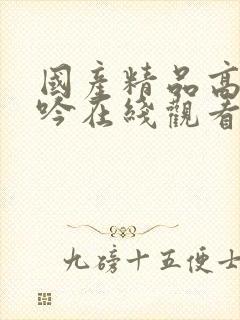 國產精品高
吟在綫觀看
九磅十五便士